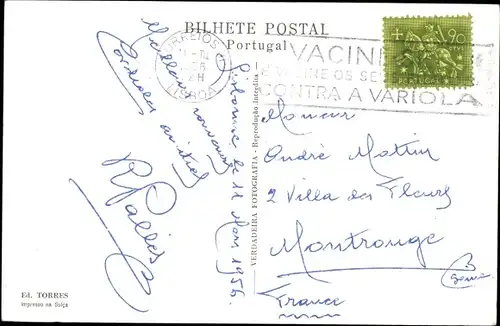 BILHETE POSTAL
Portugal
CORREIOS
LISBOA
VACINE
OS SE
CONTRA A VARIOLA
1$90
PORTUGAL
Lisbonne le 11 Mars 1956
Meilleur souvenir
Cordiales amitiés
VERDADEIRA FOTOGRAFIA - Reprodução interdita
Monsieur
André Mattin
2 Villa des Fleurs
Montrouge
Seine
France
Ed. TORRES
Impresso na Suíça